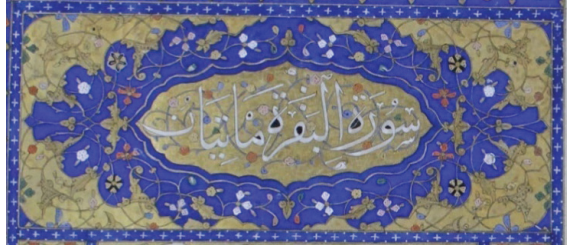 سورة البقرة مائتان